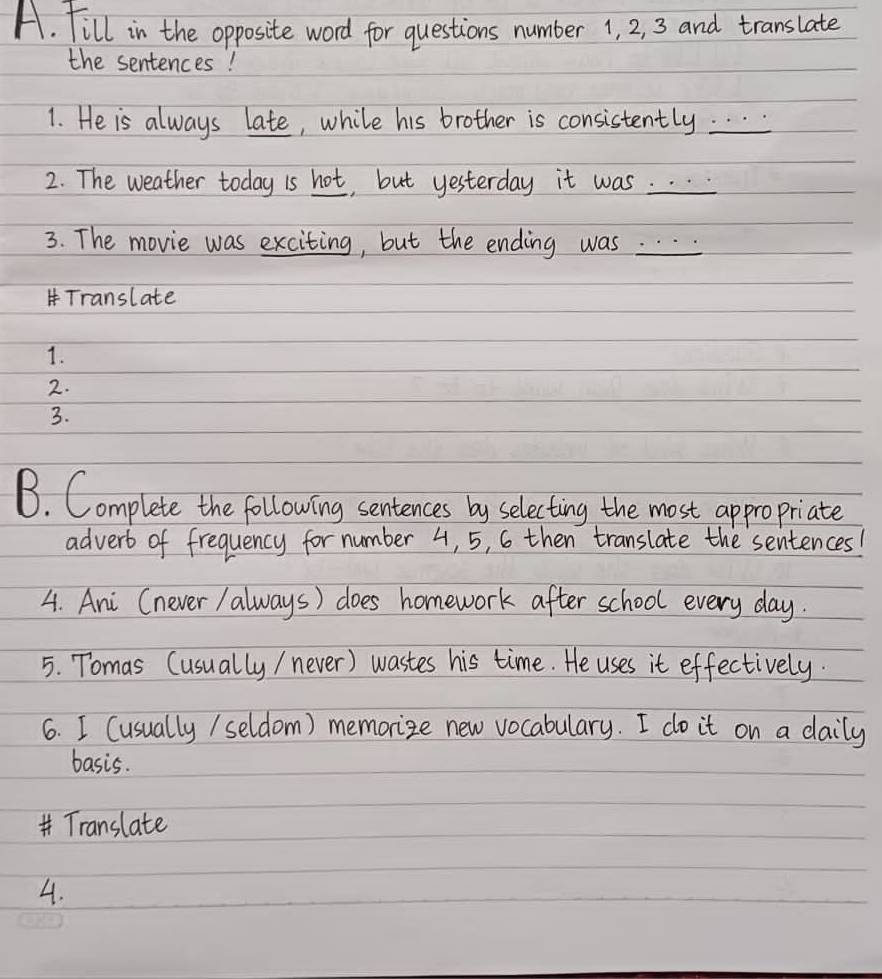 A. Fill in the opposite word for questions number 1, 2, 3 and translate
the sentences!
1. He is always late, while his brother is consistently ....
2. The weather today is hot, but yesterday it was ....
3. The movie was exciting, but the ending was ....
# Translate
1.
2.
3.
B. Complete the following sentences by selecting the most appropriate
adverb of frequency for number 4, 5, 6 then translate the sentences!
4. Ani (never / always) does homework after school every day.
5. Tomas (usually / never) wastes his time. He uses it effectively.
6. I (usually / seldom) memorize new vocabulary. I do it on a daily
basis.
# Translate
4.